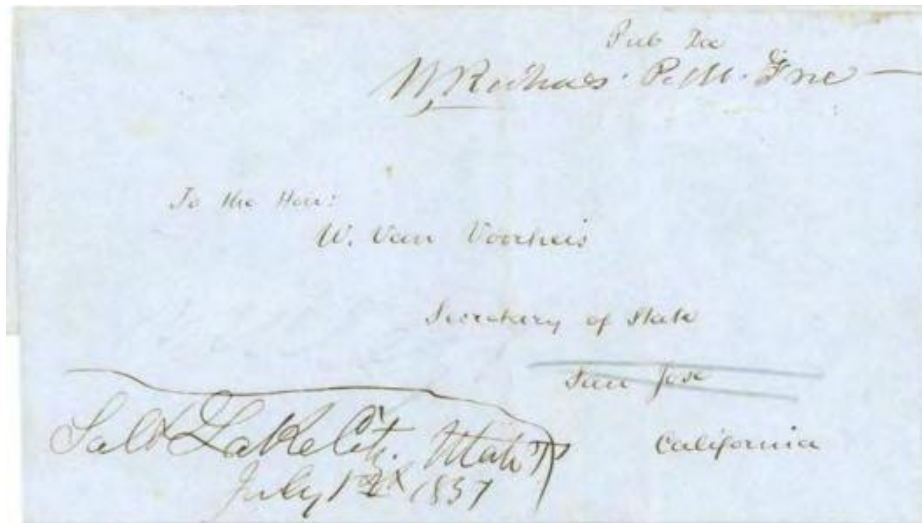 Pub Doc
W. Richards. P.M. Free
To the Hon:
W. Van Voorheis
Secretary of State
San Jose
California
Salt Lake City. Utah T
July 1852